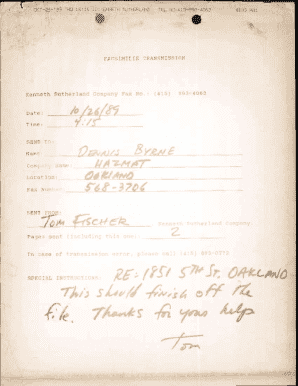 FACSIMILE TRANSMISSION
Kenneth Sutherland Company Fax No.: (415)
Date: 10/26/89
Time: 4:15
SENT TO:
Name: DENNIS BYRNE
Company Name: HAZMAT
Location: OAKLAND
Fax Number: 568-3706
SENT FROM:
TOM FISCHER Kenneth Sutherland Company
Pages sent (including this one): 2
In case of transmission error, please call (415)
SPECIAL INSTRUCTIONS: RE: 1851 5TH ST. OAKLAND
This should finish off the
file. Thanks for your help
Tom